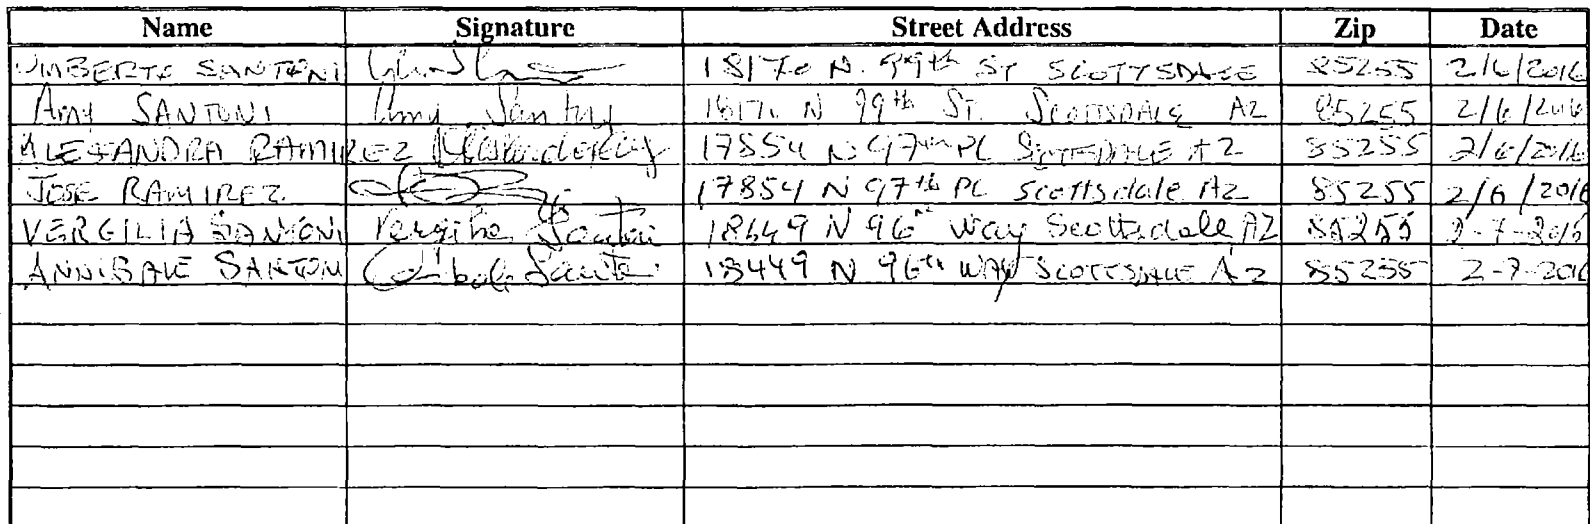 Name Signature Street Address Zip Date
UMBERTO SANTONI 18170 N. 99th ST SCOTTSDALE 85255 2/6/2016
Amy SANTONI Amy Santoni N 99th ST. SCOTTSDALE AZ 85255 2/6/2016
ALESSANDRA RAMIREZ 17854 N 97th PL SCOTTSDALE AZ 85255 2/6/2016
JOSE RAMIREZ 17854 N 97th PL Scottsdale AZ 85255 2/6/2016
VERGILIA SANTONI Vergilia Santoni N 96th Way Scottsdale AZ 85255 2-7-2016
ANNIBALE SANTONI Annibale Santoni 18449 N 96th WAY SCOTTSDALE AZ 85255 2-7-2016